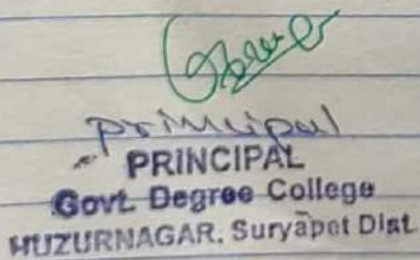 principal
PRINCIPAL
Govt. Degree College
HUZURNAGAR. Suryapet Dist.